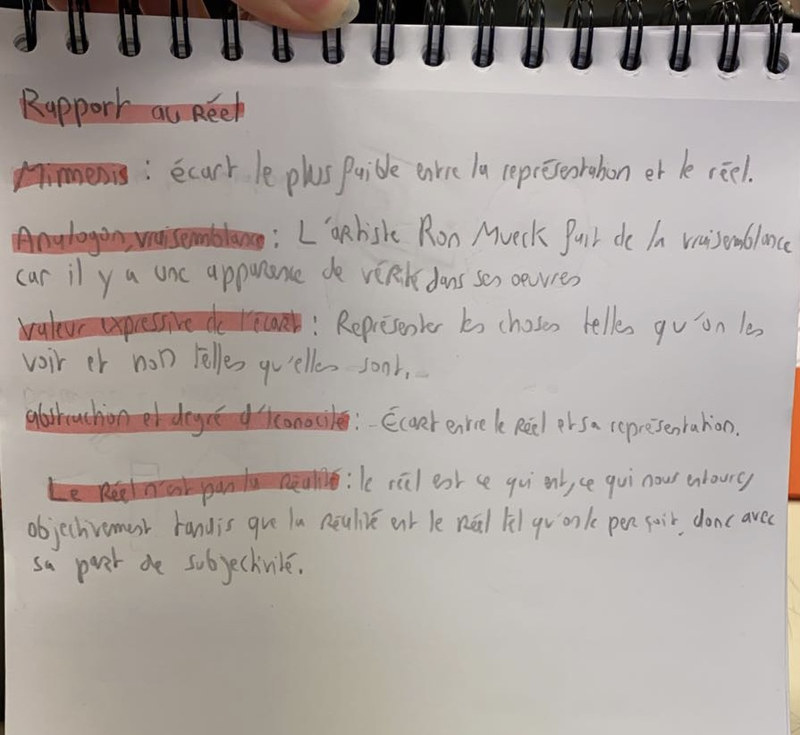 Rapport au Réel
Mimmesis : écart le plus faible entre la représentation et le réel.
Analogon, vraisemblance : L'artiste Ron Mueck fait de la vraisemblance
car il y a une apparence de vérité dans ses oeuvres
Valeur expressive de l'écart : Représenter les choses telles qu'on les
voit et non telles qu'elles sont.
abstraction et degré d'Iconocité : - Écart entre le Réel et sa représentation.
Le Réel n'est pas la réalité : le réel est ce qui est, ce qui nous entoure,
objectivement tandis que la Réalité est le Réel tel qu'on le persoit, donc avec
sa part de subjectivité.